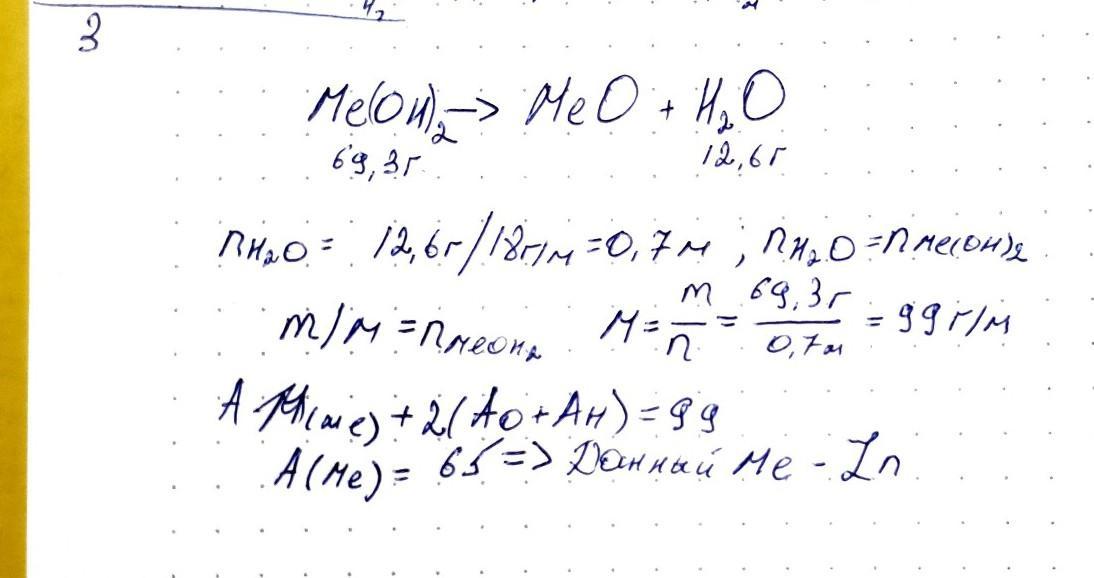 3
Me(OH)₂ → MeO + H₂O
69,3г 12,6г
nH₂O = 12,6г/18г/м = 0,7м ; nH₂O = nMe(OH)₂
m/M = nMeOH₂ M = m/n = 69,3г/0,7м = 99г/м
A (Me) + 2(AO + AH) = 99
A(Me) = 65 => Данный Me - Zn